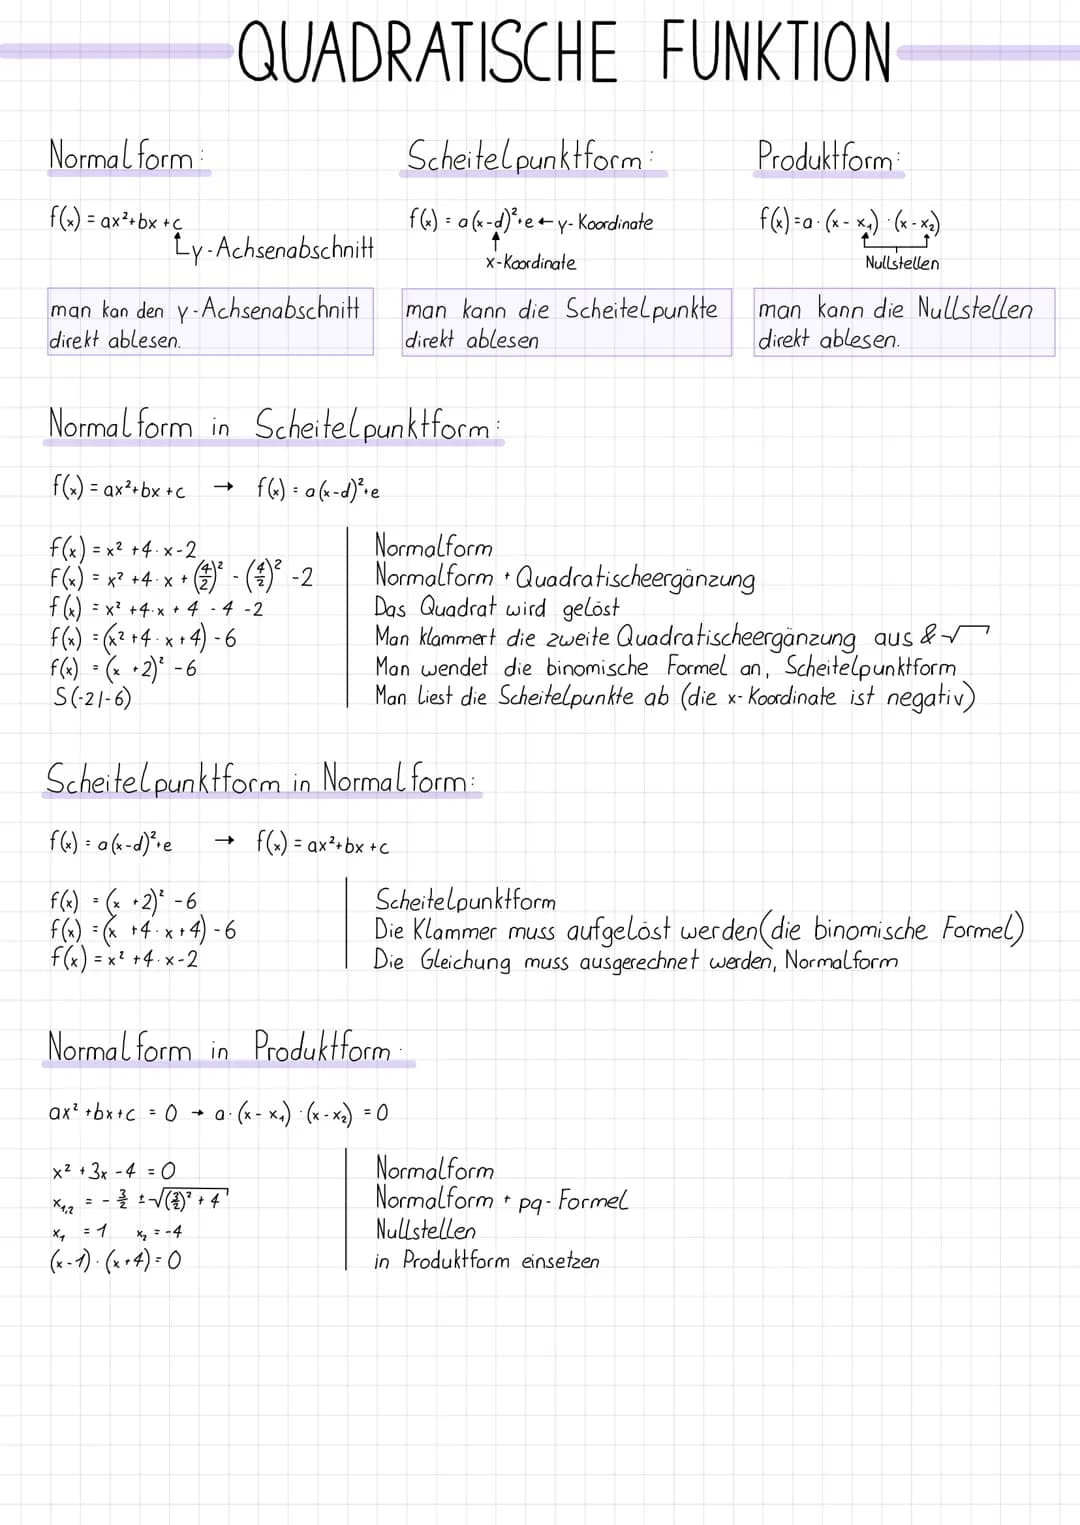 QUADRATISCHE FUNKTION
Normalform:
f(x) = ax²+bx+c
y-Achsenabschnitt
man kan den y-Achsenabschnitt
direkt ablesen.
Scheitelpunktform:
f(x) = a(x-d)²+e ← y-Koordinate
x-Koordinate
man kann die Scheitelpunkte
direkt ablesen
Produktform:
f(x)=a·(x-x₁)·(x-x₂)
Nullstellen
man kann die Nullstellen
direkt ablesen.
Normalform in Scheitelpunktform:
f(x) = ax²+bx+c → f(x) = a(x-d)²+e
f(x) = x² +4·x-2 | Normalform
f(x) = x² +4·x + (4/2)² - (4/2)² -2 | Normalform + Quadratischeergänzung
f(x) = x² +4·x + 4 - 4 -2 | Das Quadrat wird gelöst
f(x) = (x² +4·x+4) -6 | Man klammert die zweite Quadratischeergänzung aus & √
f(x) = (x +2)² -6 | Man wendet die binomische Formel an, Scheitelpunktform
S(-2|-6) | Man liest die Scheitelpunkte ab (die x-Koordinate ist negativ)
Scheitelpunktform in Normalform:
f(x) = a(x-d)²+e → f(x) = ax²+bx+c
f(x) = (x +2)² -6 | Scheitelpunktform
f(x) = (x +4·x+4) -6 | Die Klammer muss aufgelöst werden(die binomische Formel)
f(x) = x² +4·x-2 | Die Gleichung muss ausgerechnet werden, Normalform
Normalform in Produktform·
ax² +bx+c = 0 → a·(x-x₁)·(x-x₂) = 0
x² +3x -4 = 0 | Normalform
x₁,₂ = - 3/2 ± √((3/2)² + 4) | Normalform + pq-Formel
x₁ = 1 x₂ = -4 | Nullstellen
(x-1)·(x+4)=0 | in Produktform einsetzen